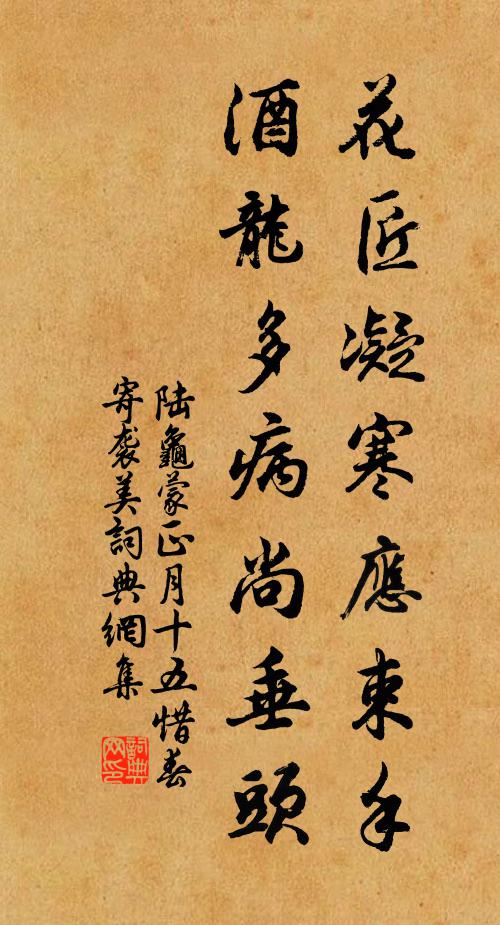 花匠凝寒應束手
酒龍多病尚垂頭
陆龜蒙正月十五惜春
寄袭美詞典網集
詞典
网印